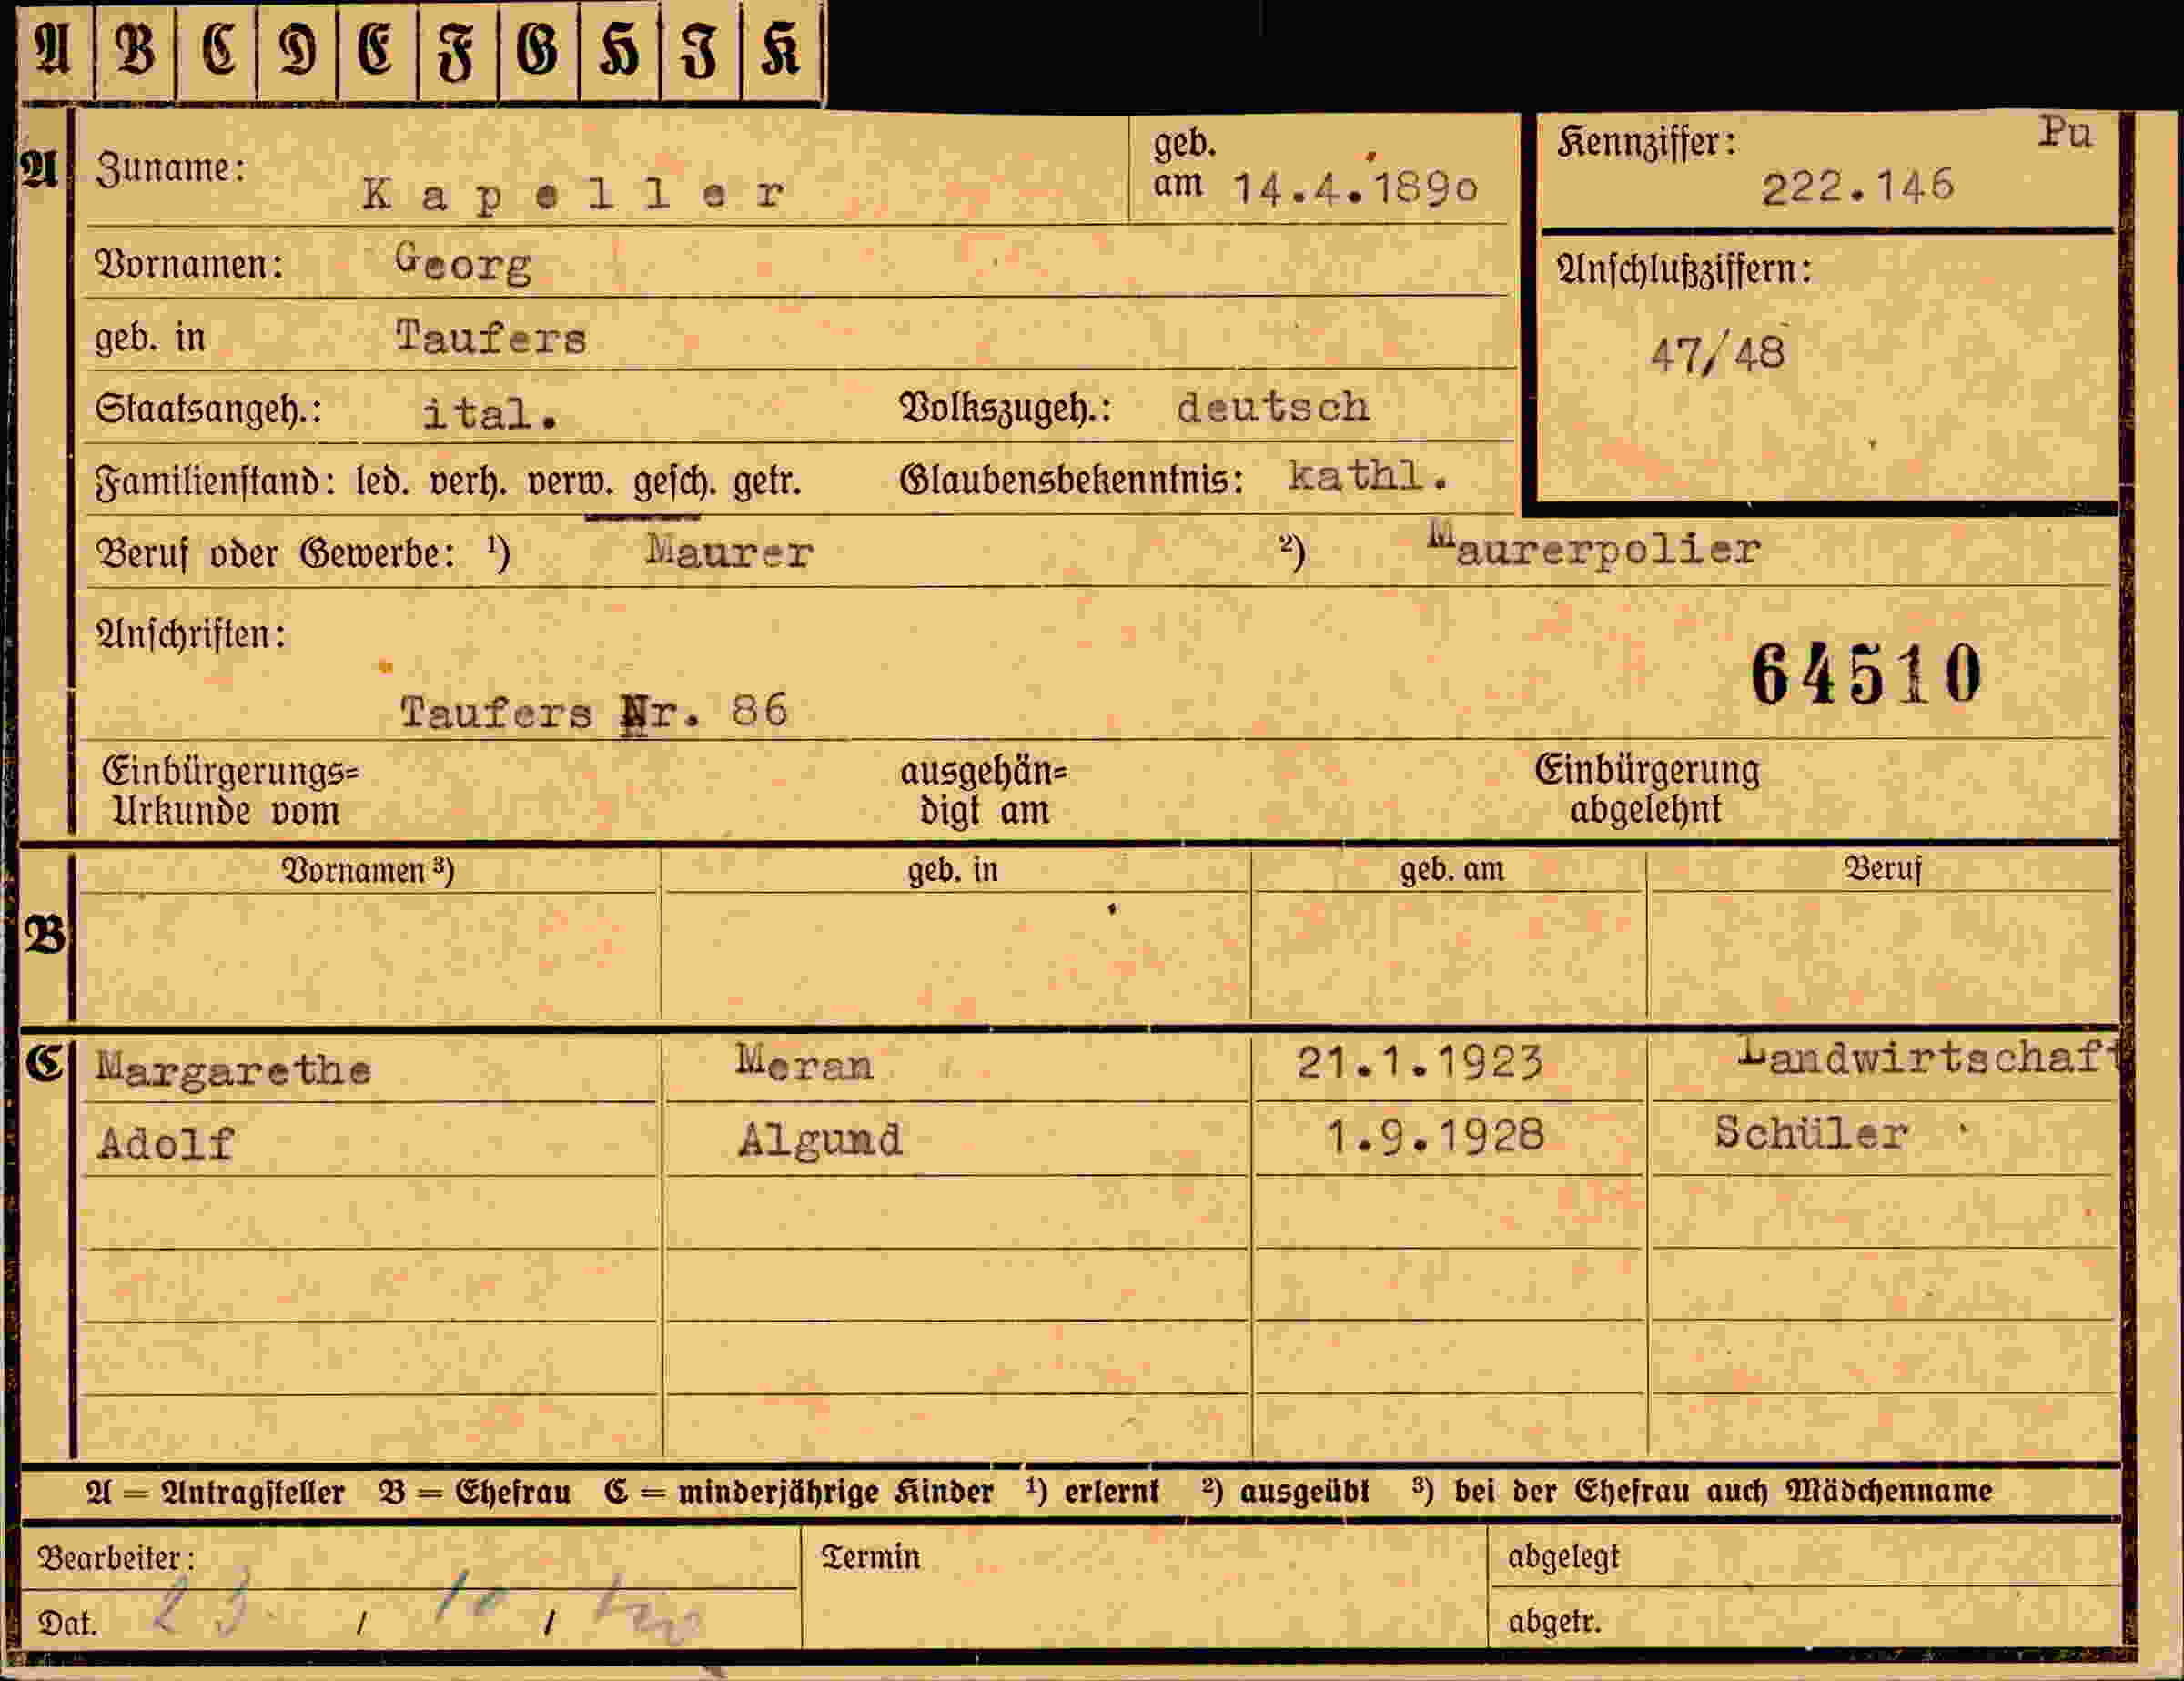 A B C D E F G H I K
A Zuname: Kapeller geb. am 14.4.1890 Kennziffer: 222.146 Pu
Vornamen: Georg
geb. in Taufers
Anschlußziffern: 47/48
Staatsangeh.: ital. Volkszugeh.: deutsch
Familienstand: led. verh. verw. gesch. getr. Glaubensbekenntnis: kathl.
Beruf oder Gewerbe: ¹) Maurer ²) Maurerpolier
Anschriften:
64510
Taufers Nr. 86
Einbürgerungs=
Urkunde vom
ausgehän=
digt am
Einbürgerung
abgelehnt
Vornamen ³) geb. in geb. am Beruf
B
C Margarethe Meran 21.1.1923 Landwirtschaft
Adolf Algund 1.9.1928 Schüler
A = Antragsteller B = Ehefrau C = minderjährige Kinder ¹) erlernt ²) ausgeübt ³) bei der Ehefrau auch Mädchenname
Bearbeiter: Termin abgelegt
Dat. 23. / 10 / abgetr.